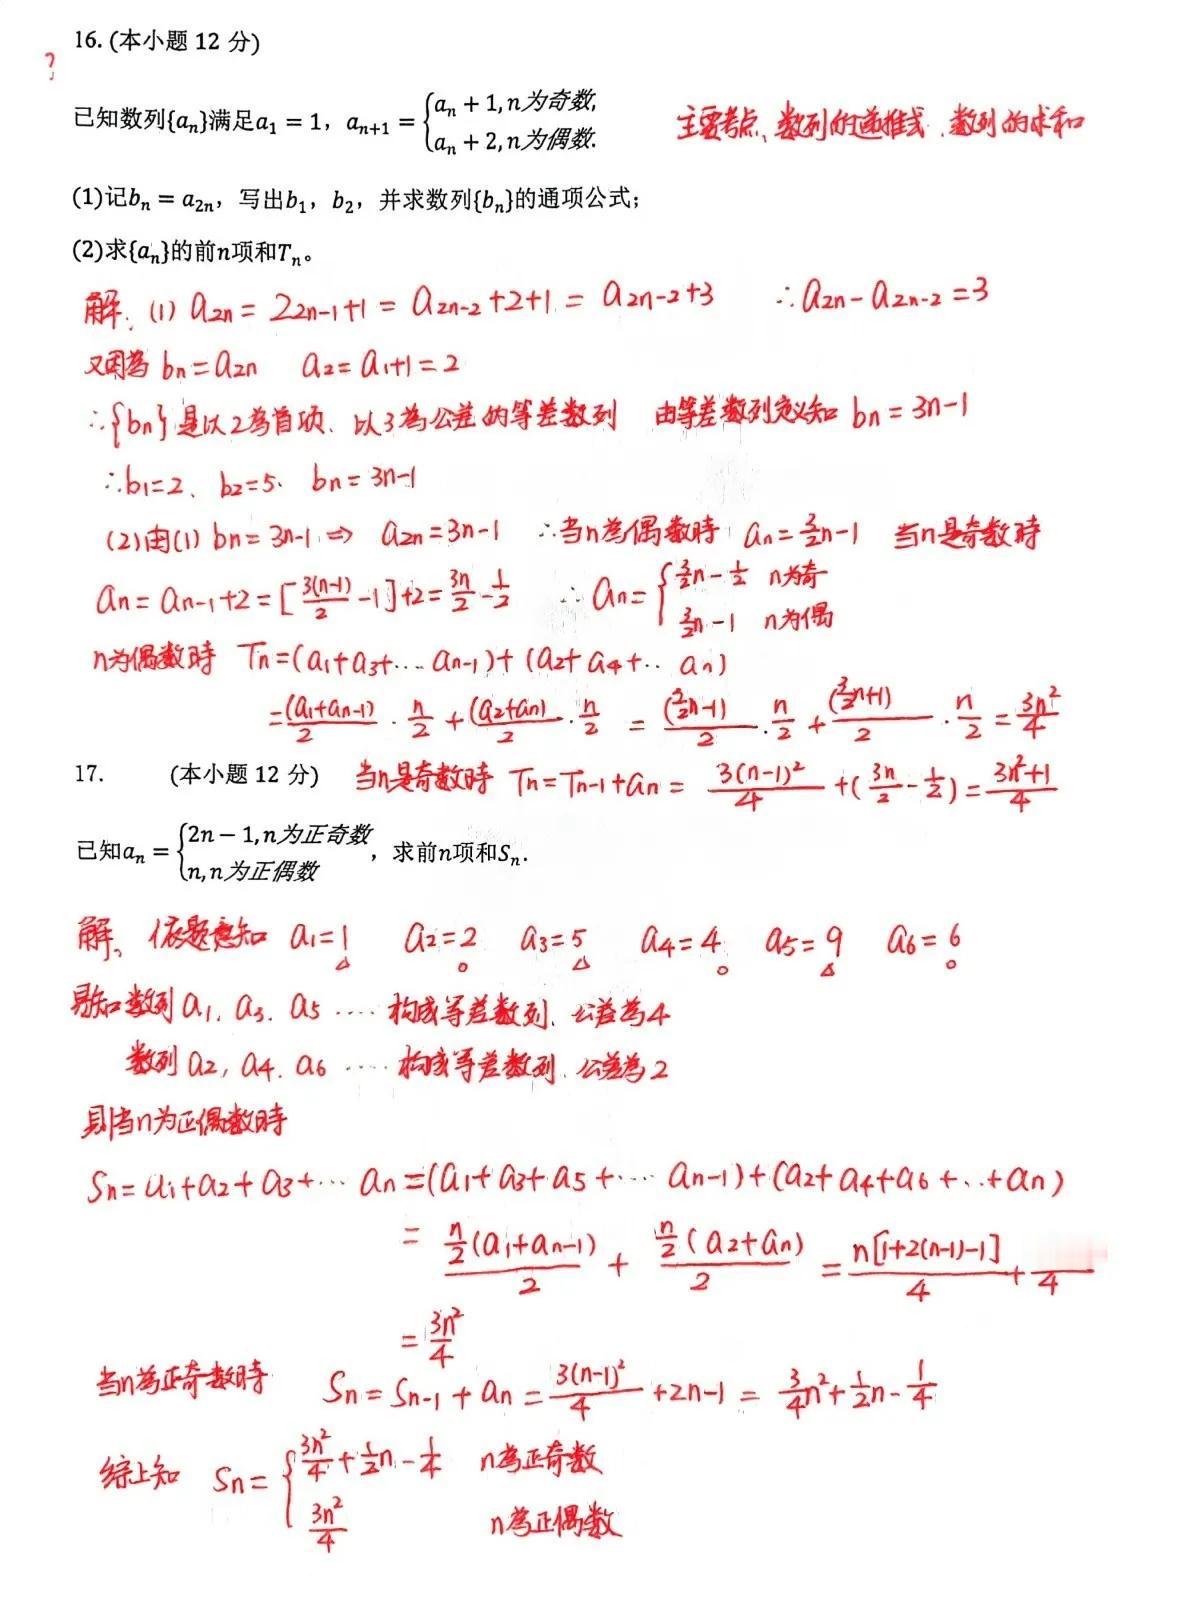 16. (本小题 12 分)
?
已知数列{aₙ}满足a₁ = 1，aₙ₊₁ = {aₙ + 1, n为奇数,
aₙ + 2, n为偶数.
主要考点、数列的递推式、数列的求和
(1)记bₙ = a₂ₙ，写出b₁，b₂，并求数列{bₙ}的通项公式；
(2)求{aₙ}的前n项和Tₙ。
解、(1) a₂ₙ = 2₂ₙ₋₁+1 = a₂ₙ₋₂+2+1 = a₂ₙ₋₂+3 ∴a₂ₙ-a₂ₙ₋₂=3
又因為 bₙ=a₂ₙ a₂=a₁+1=2
∴{bₙ}是以2為首项、以3為公差的等差数列 由等差数列定义知 bₙ=3n-1
∴b₁=2、b₂=5、bₙ=3n-1
(2)由(1) bₙ=3n-1 ⇒ a₂ₙ=3n-1 ∴当n為偶数時 aₙ=3/2n-1 当n是奇数時
aₙ=aₙ₋₁+2=[3(n-1)/2-1]+2=3n/2-1/2 ∴aₙ={3/2n-1/2 n为奇
3/2n-1 n为偶
n为偶数時 Tₙ=(a₁+a₃+…aₙ₋₁)+(a₂+a₄+‥aₙ)
=(a₁+aₙ₋₁)/2·n/2+(a₂+aₙ)/2·n/2=(3/2n-1)/2·n/2+(3/2n+1)/2·n/2=3n²/4
17. (本小题 12 分) 当n是奇数時 Tₙ=Tₙ₋₁+aₙ=3(n-1)²/4+(3n/2-1/2)=3n²+1/4
已知aₙ = {2n − 1, n为正奇数
n, n为正偶数，求前n项和Sₙ.
解、依题意知 a₁=1 a₂=2 a₃=5 a₄=4 a₅=9 a₆=6
易知数列a₁、a₃、a₅ ‥‥构成等差数列、公差為4
数列a₂，a₄、a₆ ‥‥构成等差数列、公差為2
则当n为正偶数時
Sₙ=a₁+a₂+a₃+…aₙ=(a₁+a₃+a₅+…aₙ₋₁)+(a₂+a₄+a₆+‥+aₙ)
=n/2(a₁+aₙ₋₁)/2+n/2(a₂+aₙ)/2=n[1+2(n-1)-1]/4+ /4
=3n²/4
当n為正奇数時 Sₙ=Sₙ₋₁+aₙ=3(n-1)²/4+2n-1=3/4n²+1/2n-1/4
综上知 Sₙ={3n²/4+1/2n-1/4 n為正奇数
3n²/4 n為正偶数